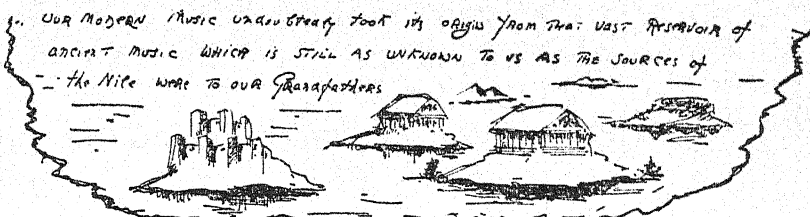 .. OUR MODERN MUSIC undoubtedly took its ORIGIN FROM THAT VAST RESERVOIR of
ancient music WHICH is STILL AS UNKNOWN TO US AS THE SOURCES of
the Nile WERE TO OUR Grandfathers